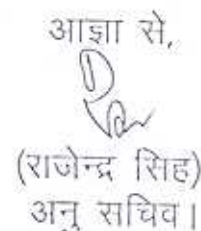 आज्ञा से,
(राजेन्द्र सिंह)
अनु सचिव।